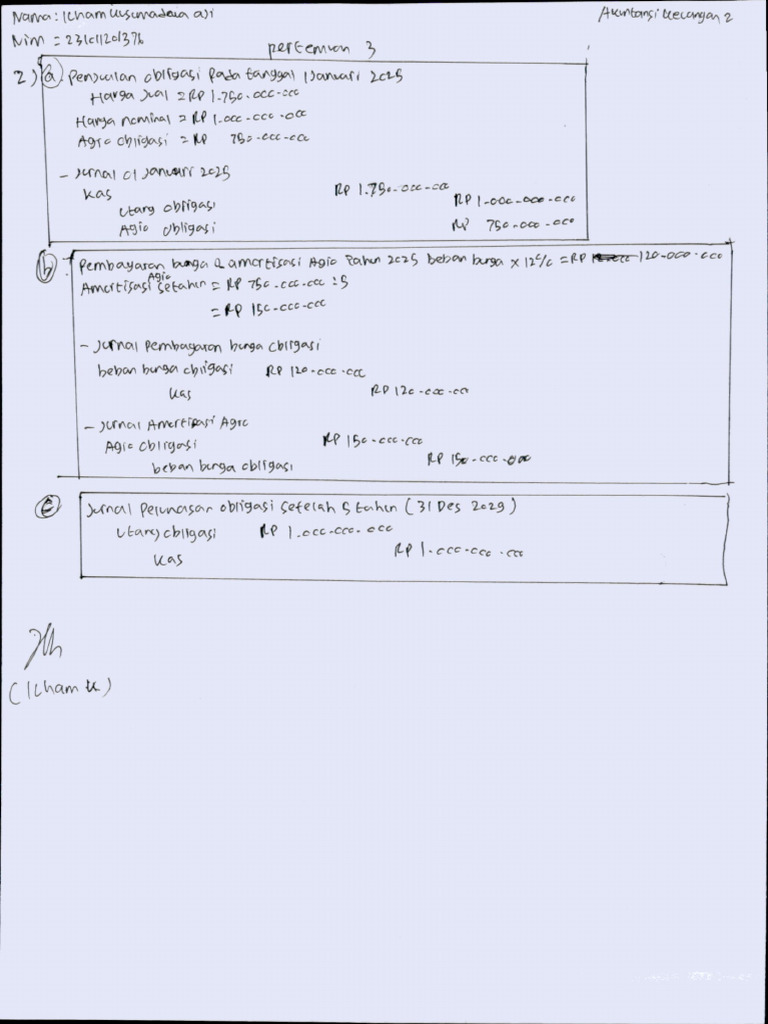 Nama : Ilham Kusumadewa aji
Akuntansi Keuangan 2
Nim = 2310112013
pertemuan 3
2) a. Penjualan obligasi pada tanggal 1 Januari 2025
Harga jual = RP 1.750.000.000
Harga nominal = RP 1.000.000.000
Agio obligasi = RP 750.000.000
- Jurnal 01 Januari 2025
Kas RP 1.750.000.000
Utang obligasi RP 1.000.000.000
Agio obligasi RP 750.000.000
b. Pembayaran bunga & amortisasi Agio Tahun 2025 beban bunga × 12% = RP 120.000.000
Amortisasi Agio setahun = RP 750.000.000 : 5
= RP 150.000.000
- Jurnal Pembayaran bunga obligasi
beban bunga obligasi RP 120.000.000
Kas RP 120.000.000
- Jurnal Amortisasi Agio
Agio obligasi RP 150.000.000
beban bunga obligasi RP 150.000.000
c. Jurnal Pelunasan obligasi setelah 5 tahun (31 Des 2029)
Utang obligasi RP 1.000.000.000
Kas RP 1.000.000.000
(Ilham K)